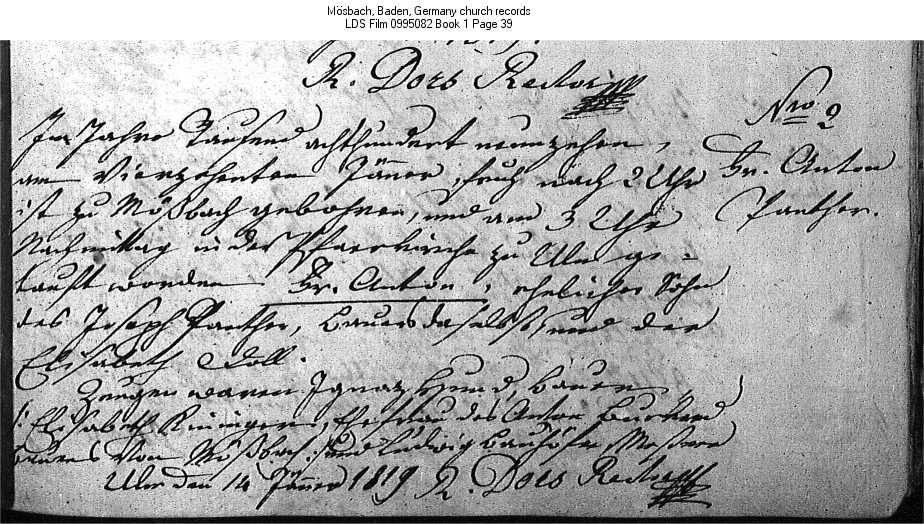 Mösbach, Baden, Germany church records
LDS Film 0995082 Book 1 Page 39
R. Dors Rector
Nro 2
Im Jahre Tausend achthundert neunzehen,
am Vierzehenten Jäner, früh nach 2 Uhr
Fr. Anton
ist zu Mößbach gebohren, und am 3 Uhr
Panther.
Nachmittag in der Pfarrkirche zu Ulm ge-
tauft worden Fr. Anton, ehelicher Sohn
des Joseph Panther, Bauers daselbst, und der
Elisabeth Doll.
Zeugen waren Ignaz Hund, Bauer
Elisabeth Ehefrau des Anton Burkard
Bauers von Mößbach und Ludwig Messner
Ulm den 14 Jäner 1819 R. Dors Rector